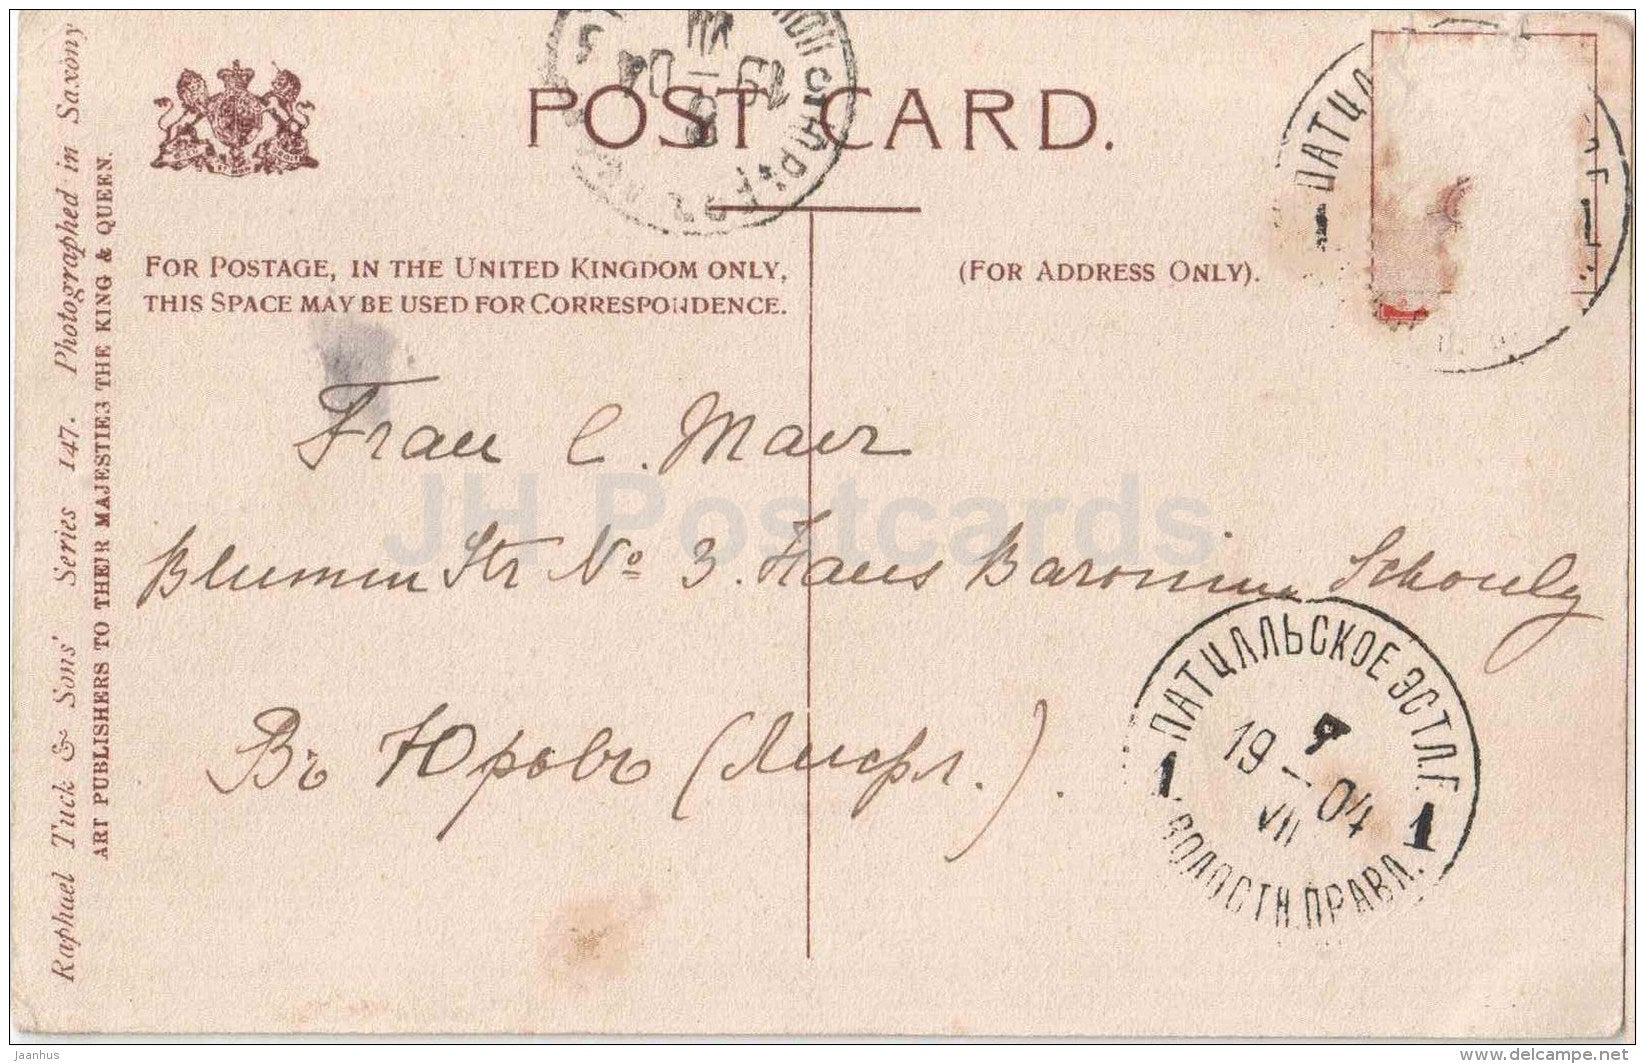 POST CARD.
FOR POSTAGE, IN THE UNITED KINGDOM ONLY,
THIS SPACE MAY BE USED FOR CORRESPONDENCE.
(FOR ADDRESS ONLY).
Raphael Tuck & Sons' Series 147. Photographed in Saxony
ART PUBLISHERS TO THEIR MAJESTIES THE KING & QUEEN.
Frau C. Maer
Blumen Str No 3. Haus Baronin Schoulz
Въ Юрьевъ (Лифл.).
ПАТЦАЛЬСКОЕ ЭСТЛ.Г.
7
19 – 04
VII
1 1
ВОЛОСТН.ПРАВЛ.
ПАТЦА
JH Postcards
jaanhus
www.delcampe.net